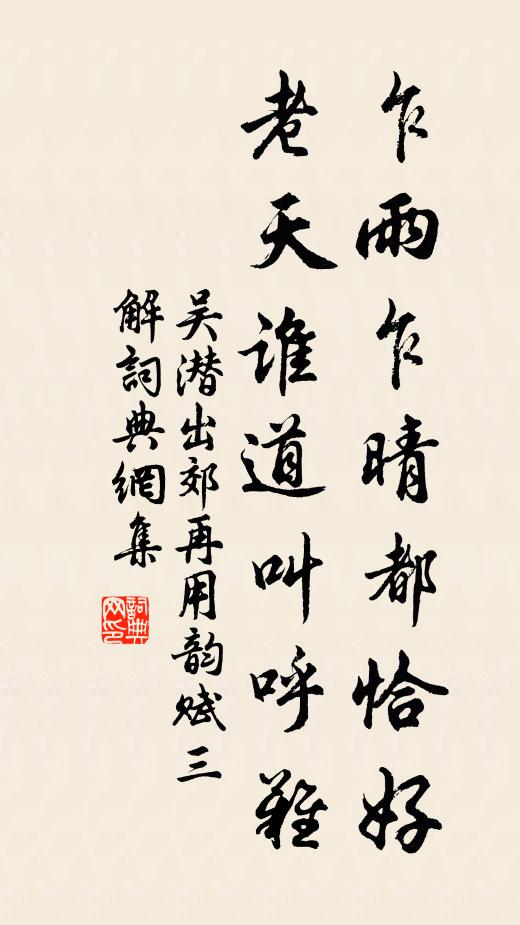 乍雨乍晴都恰好
老天誰道叫呼難
吴潜出郊再用韵赋三
解詞典網集
詞典网印